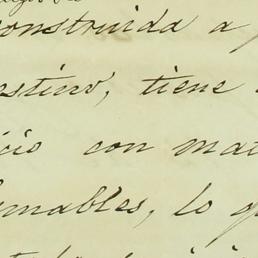 construida a
stino, tiene
icio con mat
mables, lo q